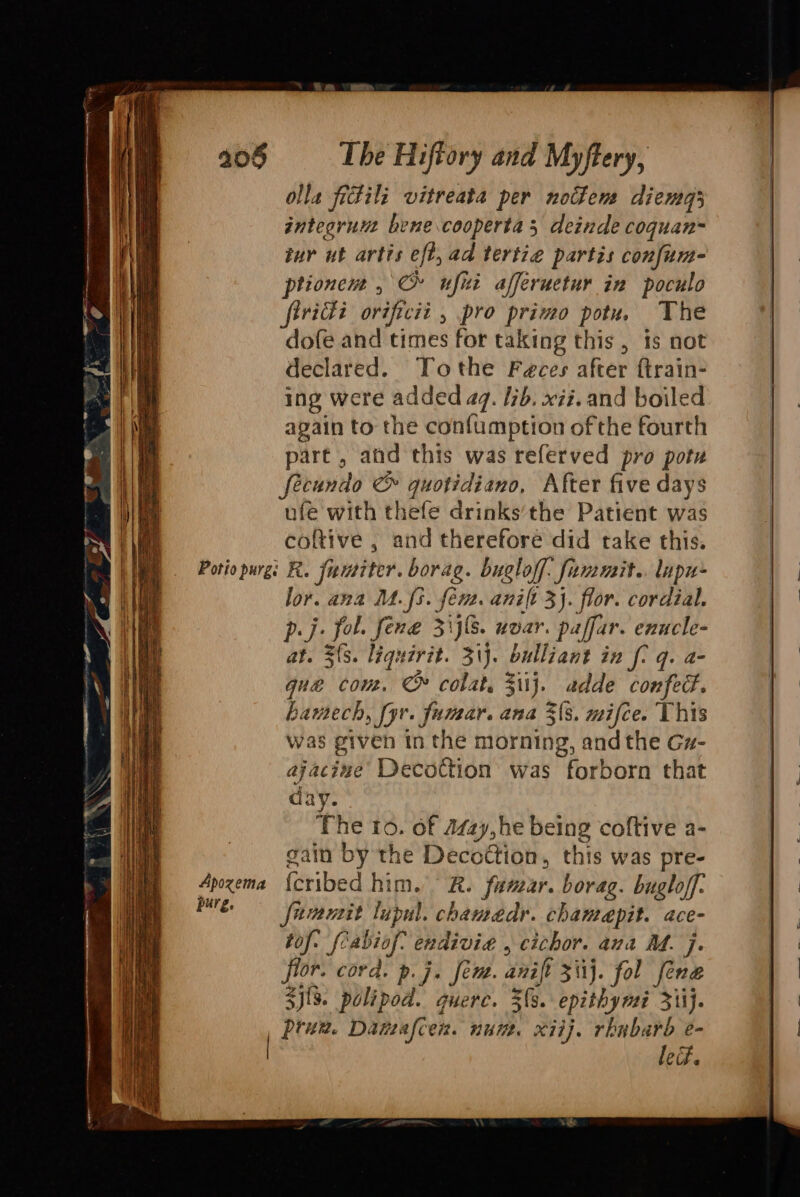 206 The Hiſtory and Myſtery,
olla fictili vitreata per noctem diemq;
integrum bene cooperta; deinde coquan-
tur ut artis eſt, ad tertiæ partis conſum-
ptionem, & uſui aſſeruetur in poculo
ſtricti orificii, pro primo potu. The
doſe and times for taking this, is not
declared. To the Fæces after ſtrain-
ing were added aq. lib. xii. and boiled
again to the conſumption of the fourth
part, and this was reſerved pro potu
ſecundo & quotidiano. After five days
uſe with theſe drinks the Patient was
coſtive, and therefore did take this.
Potio purg: R. fumiter. borag. bugloſſ. ſummit. lupu-
lor. ana M. ſs. ſem. aniſi ʒj. flor. cordial.
p. j. fol. ſenæ ʒijſs. uvar. paſſar. enucle-
at. ℥ſs. liquirit. ʒij. bulliant in ſ. q. a-
quæ com. & colat. ℥iij. adde confect.
hamech, ſyr. fumar. ana ℥ſs. miſce. This
was given in the morning, and the Gu-
ajacine Decoction was forborn that
day.
The 10. of May, he being coſtive a-
gain by the Decoction, this was pre-
Apozema ſcribed him. R. fumar. borag. bugloſſ.
purg. ſummit lupul. chamædr. chamæpit. ace-
toſ. ſcabioſ. endiviæ, cichor. ana M. j.
flor. cord. p. j. ſem. aniſi ʒiij. fol ſenæ
℥jſs. polipod. querc. ℥ſs. epithymi ʒiij.
prun. Damaſcen. num. xiij. rhubarb e-
lect.